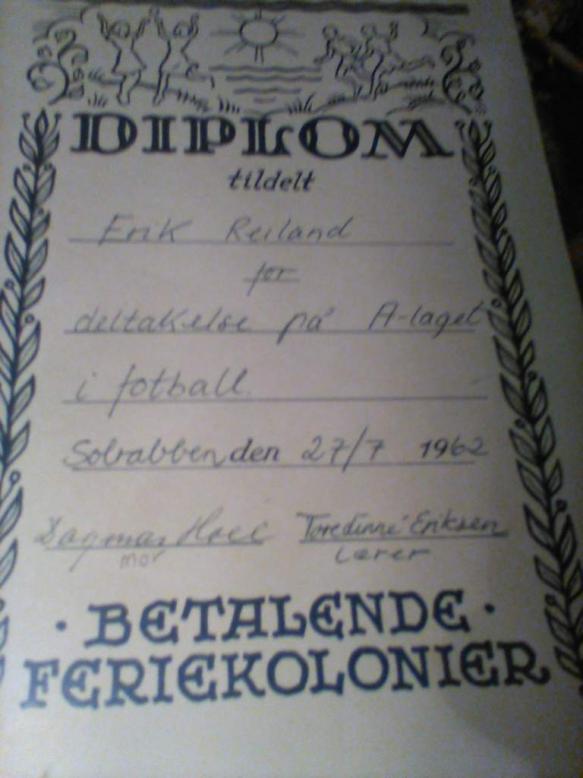 DIPLOM
tildelt
Erik Reiland
for
deltakelse på A-laget
i fotball.
Solrabben den 27/7 1962
Dagmar Eriksen
mor lærer
· BETALENDE ·
FERIEKOLONIER